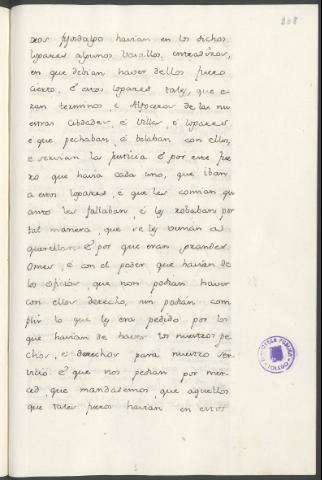 208
ros fijosdalgo havian en los dichos
lugares algunos Vasillos, entradizas,
en que debian haver dellos fuero
cierto, é otros lugares tales, que e-
ran terminos, e Alfoceros de las nu
estras Cibdades, é Villas, é lugares
é que pechaban, é belaban con ellos,
e servian la justicia. E por este fue
ro que havia cada uno, que iban
a estos lugares, é que les comian qu
anto les fallaban, é les robaban por
tal manera, que se les venian a
querellar. E por que eran grandes
Omes, é con el poder que havian de
los oficios, que non podian haver
con ellos derecho, nin podian com
plir lo que les era pedido por los
que havian de haver los nuestros pe
chos, e derechos para nuestro ser
vicio. E que nos pedian por mer-
ced, que mandasemos, que aquellos
que tales fueros havian en estos
TOLEDO